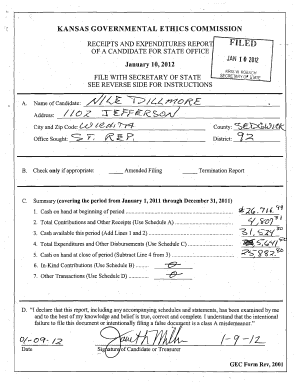 KANSAS GOVERNMENTAL ETHICS COMMISSION
RECEIPTS AND EXPENDITURES REPORT
OF A CANDIDATE FOR STATE OFFICE
FILED
JAN 10 2012
KRIS W. KOBACH
SECRETARY OF STATE
January 10, 2012
FILE WITH SECRETARY OF STATE
SEE REVERSE SIDE FOR INSTRUCTIONS
A. Name of Candidate: NILE DILLMORE
Address: 1102 JEFFERSON
City and Zip Code: WICHITA County: SEDGWICK
Office Sought: ST. REP. District: 92
B. Check only if appropriate: Amended Filing Termination Report
C. Summary (covering the period from January 1, 2011 through December 31, 2011)
1. Cash on hand at beginning of period
2. Total Contributions and Other Receipts (Use Schedule A)
3. Cash available this period (Add Lines 1 and 2)
4. Total Expenditures and Other Disbursements (Use Schedule C)
5. Cash on hand at close of period (Subtract Line 4 from 3)
6. In-Kind Contributions (Use Schedule B)
7. Other Transactions (Use Schedule D)
D. "I declare that this report, including any accompanying schedules and statements, has been examined by me
and to the best of my knowledge and belief is true, correct and complete. I understand that the intentional
failure to file this document or intentionally filing a false document is a class A misdemeanor."
01-09-12 1-9-12
Date Signature of Candidate or Treasurer
GEC Form Rev, 2001